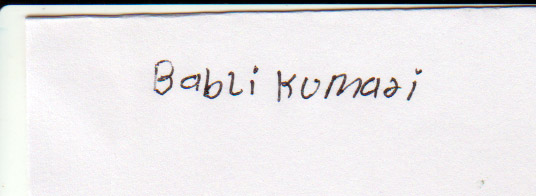 Babli Kumari